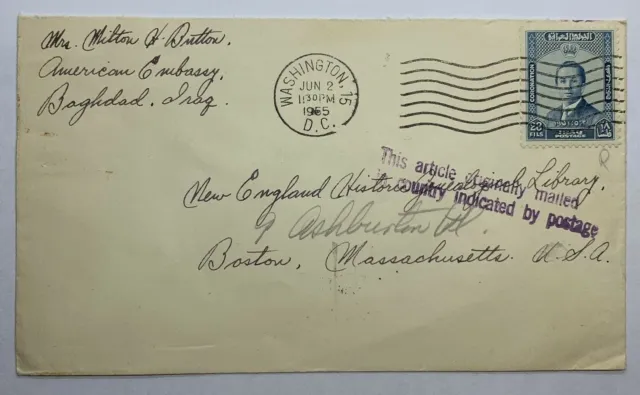 Mrs. Milton H. Button,
American Embassy,
Baghdad, Iraq.
WASHINGTON, 15
JUN 2
1:30 PM
1955
D.C.
CORONATION
28
FILS
POSTAGE
This article originally mailed
country indicated by postage
New England Historic Genealogical Library,
9 Ashburton Pl.
Boston, Massachusetts. U.S.A.